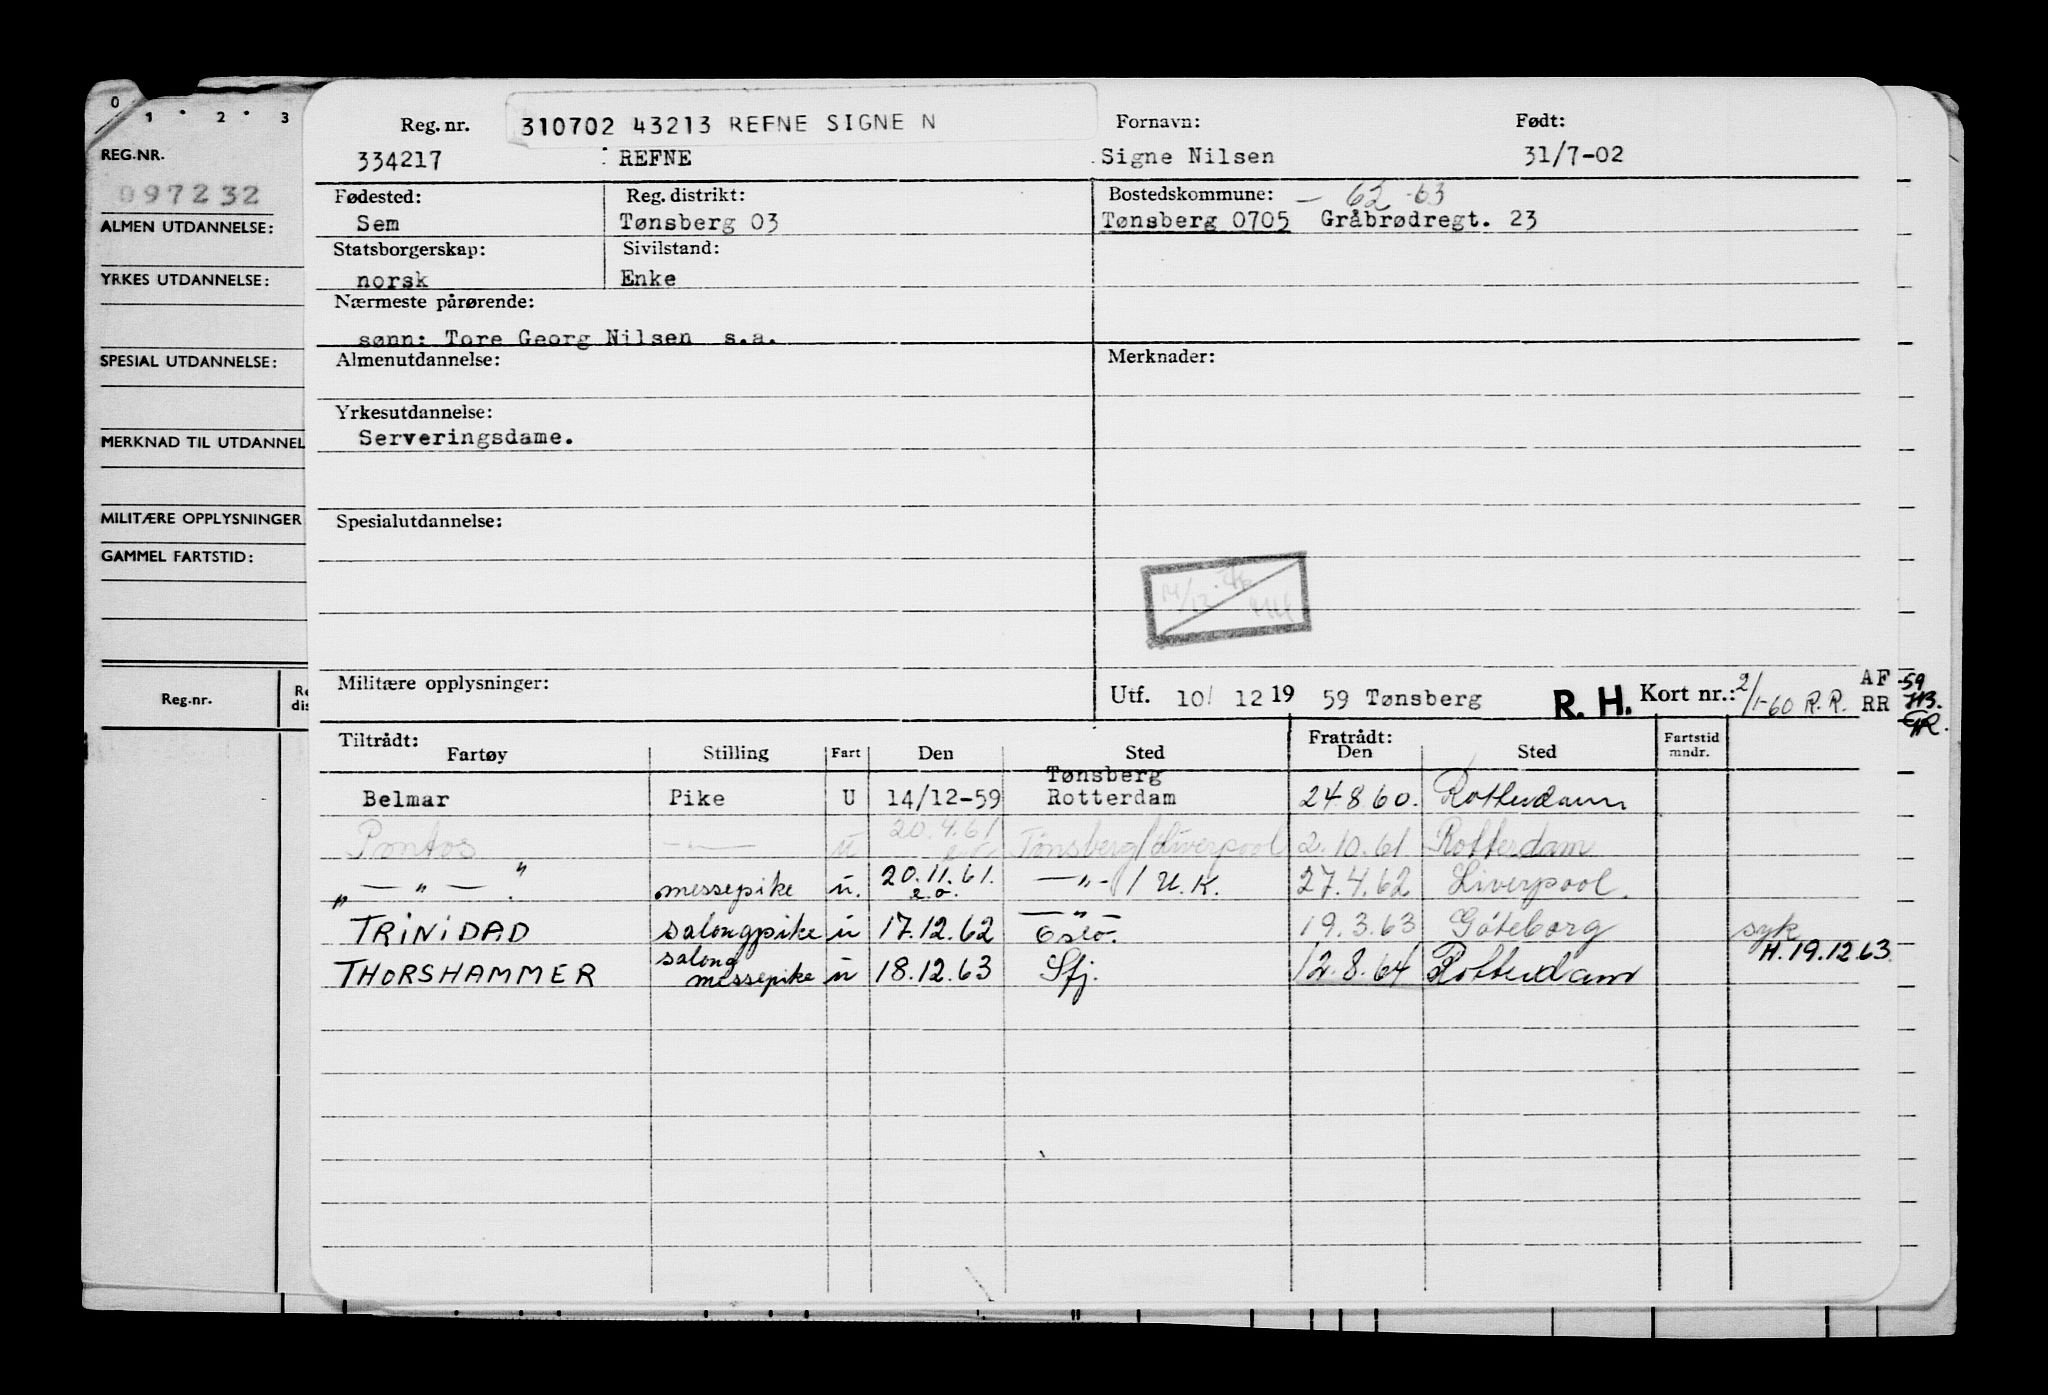 0 1 2 3
REG.NR.
097232
ALMEN UTDANNELSE:
YRKES UTDANNELSE:
SPESIAL UTDANNELSE:
MERKNAD TIL UTDANNEL
MILITÆRE OPPLYSNINGER
GAMMEL FARTSTID:
Reg.nr.
Re
dis
Reg. nr. 310702 43213 REFNE SIGNE N Fornavn: Født:
334217 REFNE Signe Nilsen 31/7-02
Fødested: Reg. distrikt: Bostedskommune: — 62-63
Sem Tønsberg 03 Tønsberg 0705 Gråbrødregt. 23
Statsborgerskap: Sivilstand:
norsk Enke
Nærmeste pårørende:
sønn: Tore Georg Nilsen s.a.
Almenutdannelse: Merknader:
Yrkesutdannelse:
Serveringsdame.
Spesialutdannelse:
Militære opplysninger: Utf. 10/ 12 19 59 Tønsberg R. H. Kort nr.: 2/1-60 R.R. AF -59
RR HB.
Tiltrådt: Fratrådt: Fartstid
Fartøy Stilling Fart Den Sted Den Sted mndr.
Tønsberg
Belmar Pike U 14/12-59 Rotterdam 24.8.60. Rotterdam
Pontos —"— u 20.4.61 Tønsberg/Liverpool 2.10.61 Rotterdam
„ — „ — " messepike u. 20.11.61. e.o. —„-/ U.K. 27.4.62 Liverpool.
TRINIDAD salongpike u 17.12.62 —„— Oslo. 19.3.63 Göteborg syk
H. 19.12.63
THORSHAMMER salong messepike u 18.12.63 Sfj. 12.8.64 Rotterdam